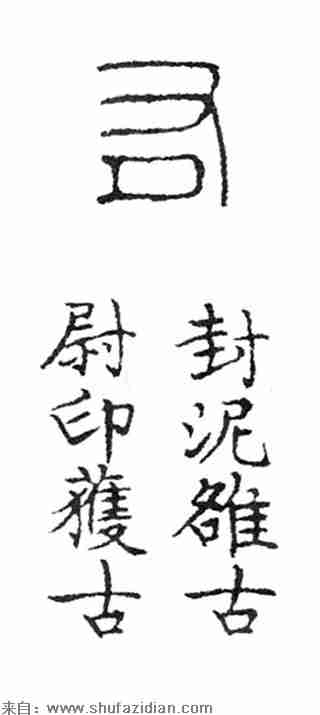 司
封泥雒古
尉印獲古
来自：www.shufazidian.com